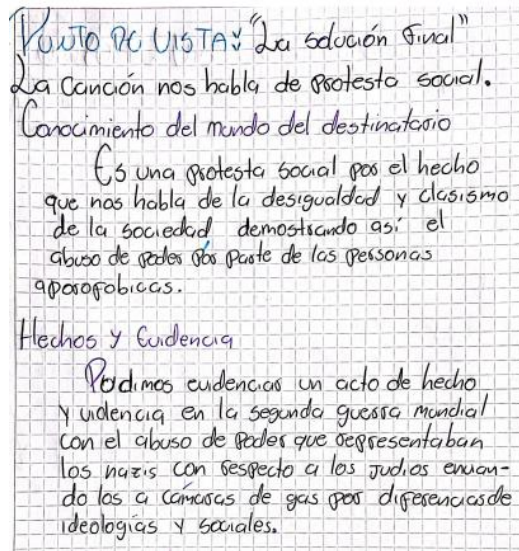 PUNTO DE VISTA: "La solución final"
La canción nos habla de protesta social.
Conocimiento del mundo del destinatario
Es una protesta social por el hecho
que nos habla de la desigualdad y clasismo
de la sociedad demostrando así el
abuso de poder por parte de las personas
aporofobicas.
Hechos y Evidencia
Podimos evidenciar un acto de hecho
y violencia en la segunda guerra mundial
con el abuso de poder que representaban
los nazis con respecto a los judios envian-
do los a camaras de gas por diferencias de
ideologías y sociales.